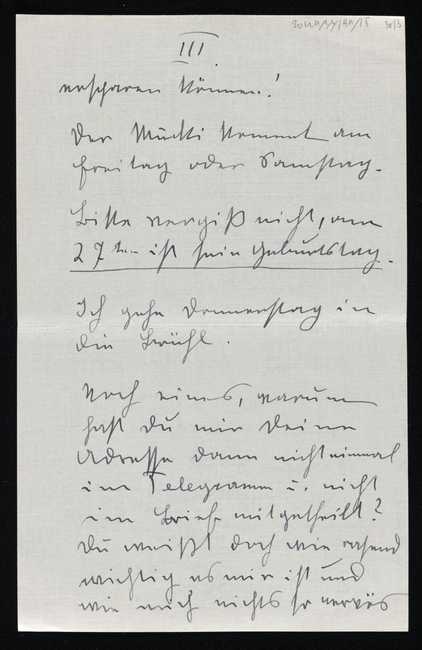 III.
ersparen können!
Der Mucki kommt am
Freitag oder Samstag.
Bitte vergiß nicht, am
27ten ist sein Geburtstag.
Ich gehe Donnerstag in
die
Noch eines, warum
hast Du mir Deine
Adresse dann nicht einmal
im Telegramm u. nicht
im Briefe mitgetheilt?
Du weißt doch wie rasend
wichtig es mir ist und
wie mich nichts so nervös